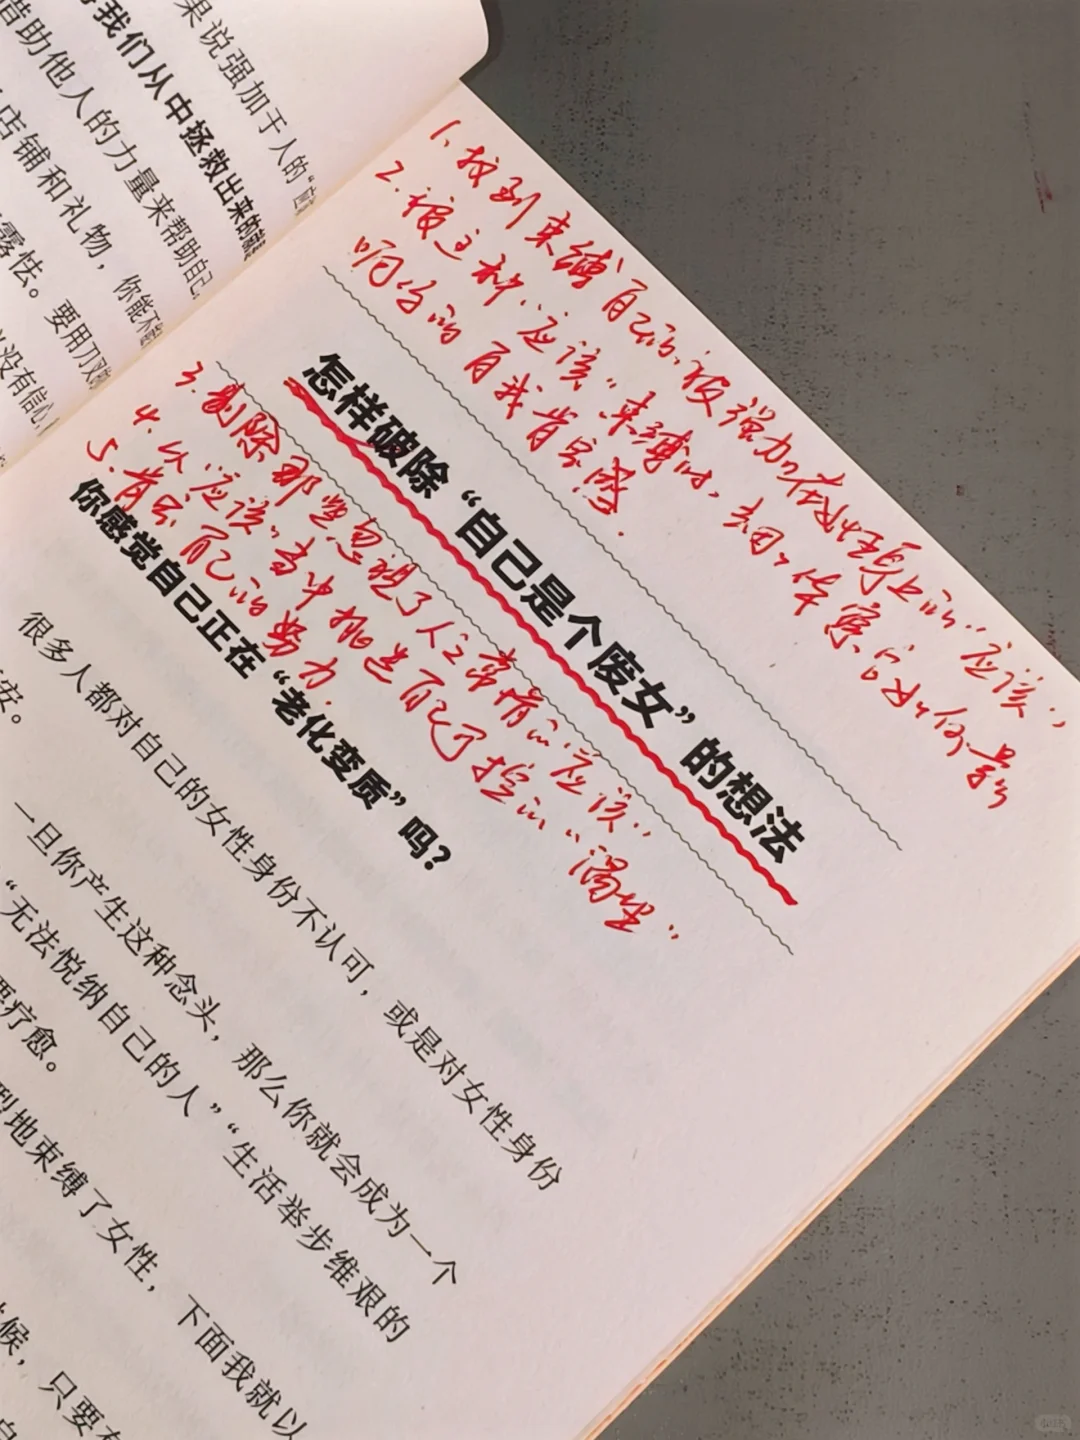 果说强加于人的“自
我们从中拯救出来的
借助他人的力量来帮助自己,
店铺和礼物,你能不
露怯。要用刀叉
没有信心,
1.找到束缚自己的,被强加在女性身上的“应该”
2.被这种“应该”束缚时,去一个体察它如何影
响你的自我肯定感.
怎样破除“自己是个废女”的想法
3.剔除那些忽视了人之常情的“应该”
4.从“应该”当中挑选自己可控的“渴望”
5.肯定自己的努力.
你感觉自己正在“老化变质”吗?
很多人都对自己的女性身份不认可,或是对女性身份
安。
一旦你产生这种念头,那么你就会成为一个
“无法悦纳自己的人”“生活举步维艰的
要疗愈。
型地束缚了女性,下面我就以
候,只要